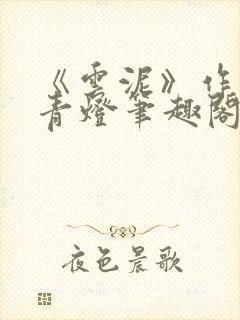 《雲泥》作
青燈筆趣閣
夜色晨歌